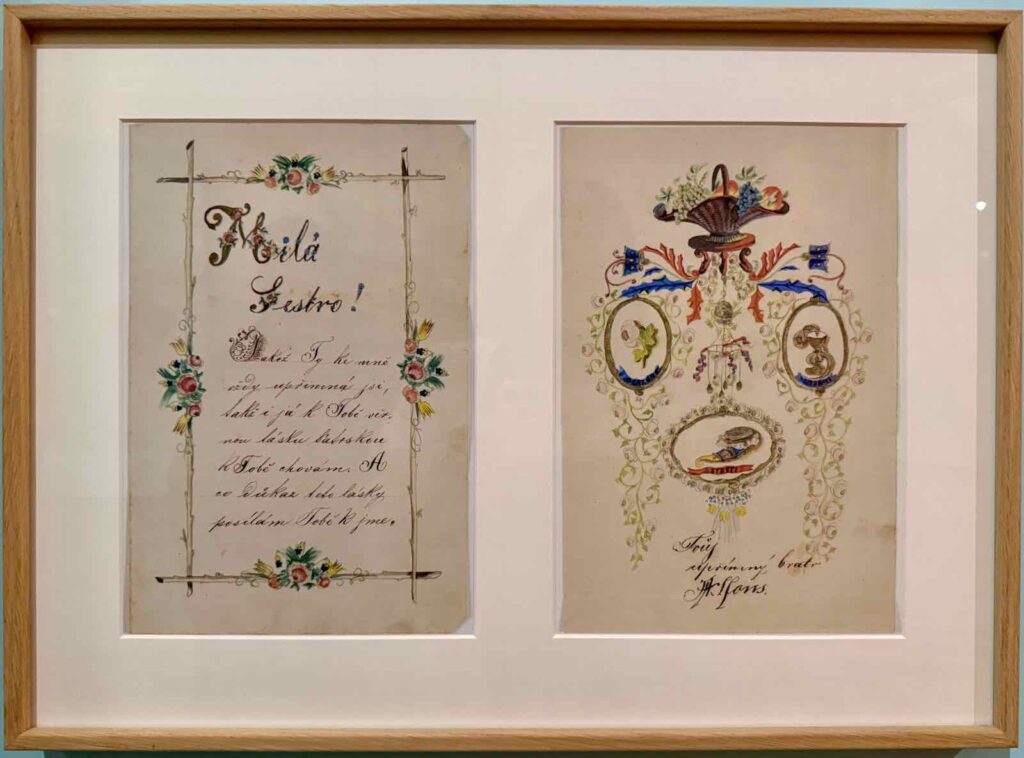 Milá
Sestro!
Jakož Ty ke mně
vždy upřímná jsi,
také i já k Tobě věr-
nou lásku bratrskou
k Tobě chovám. A
co důkaz této lásky
posílám Tobě k jme.
Tvůj
upřímný bratr
Alfons.